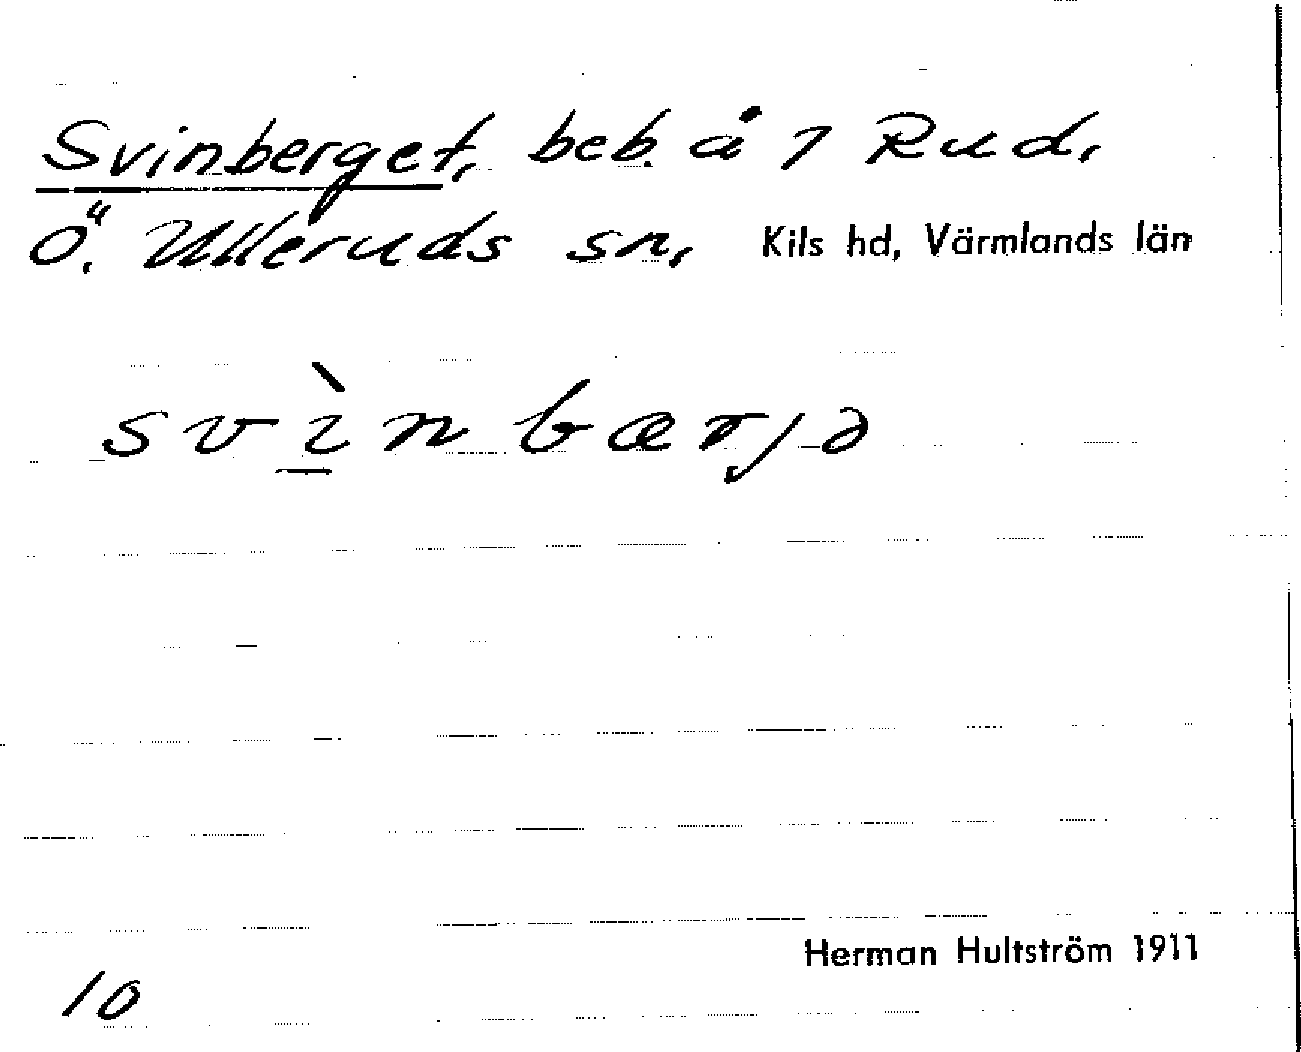 Svinberget, beb. å 1 Rud,
Ö. Ulleruds sn, Kils hd, Värmlands län
svì̠nbærjə
Herman Hultström 1911
10